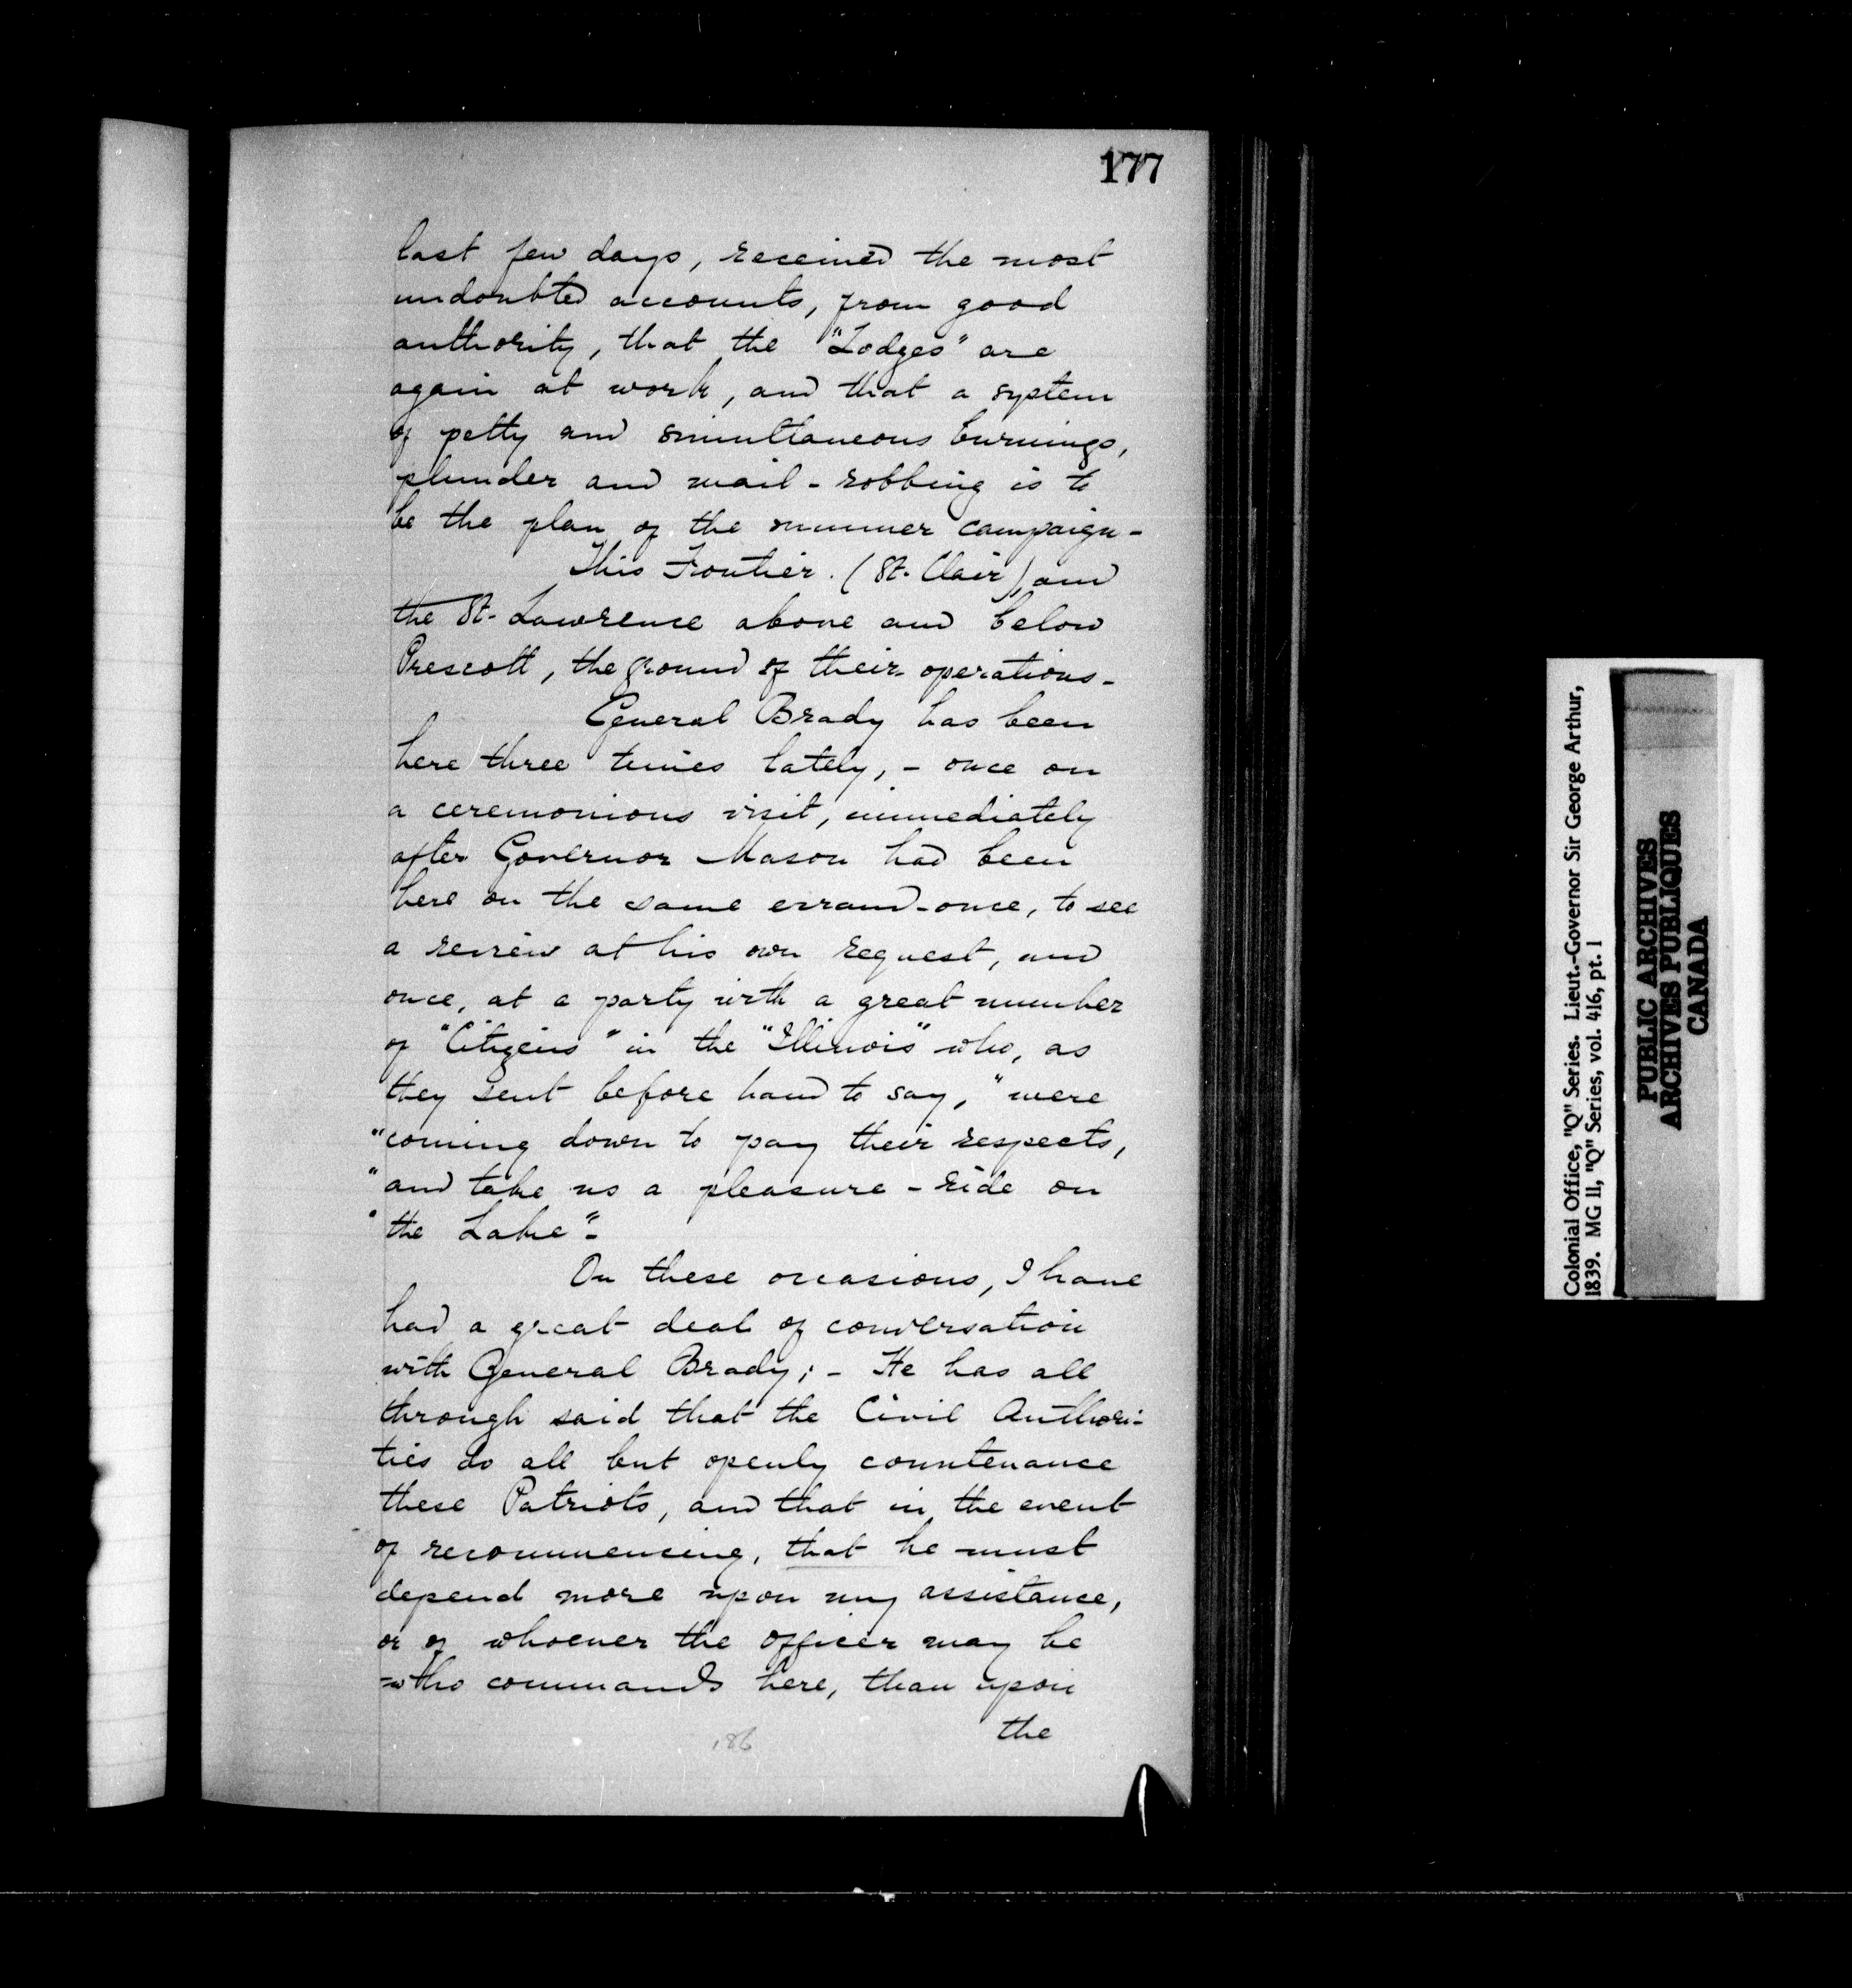 177
last few days, received the most
undoubted accounts, from good
authority, that the "Lodges" are
again at work, and that a system
of petty and simultaneous burnings,
plunder and mail-robbing is to
be the plan of the summer campaign-
This Frontier. (St. Clair), and
the St. Lawrence above and below
Prescott, the ground of their operations-
General Brady has been
here three times lately, - once on
a ceremonious visit, immediately
after Governor Mason had been
here on the same errand-once, to see
a review at his own request, and
once, at a party with a great number
of "Citizens" in the "Illinois" who, as
they sent before hand to say, "were
"coming down to pay their respects,
"and take us a pleasure-ride on
"the Lake"-
On these occasions, I have
had a great deal of conversation
with General Brady; - He has all
through said that the Civil Authori-
ties do all but openly countenance
these Patriots, and that in the event
of recommencing, that he must
depend more upon my assistance,
or of whoever the officer may be
who commands here, than upon
the
186
Colonial Office, "Q" Series. Lieut.-Governor Sir George Arthur,
1839. MG 11, "Q" Series, vol. 416, pt. 1
PUBLIC ARCHIVES
ARCHIVES PUBLIQUES
CANADA